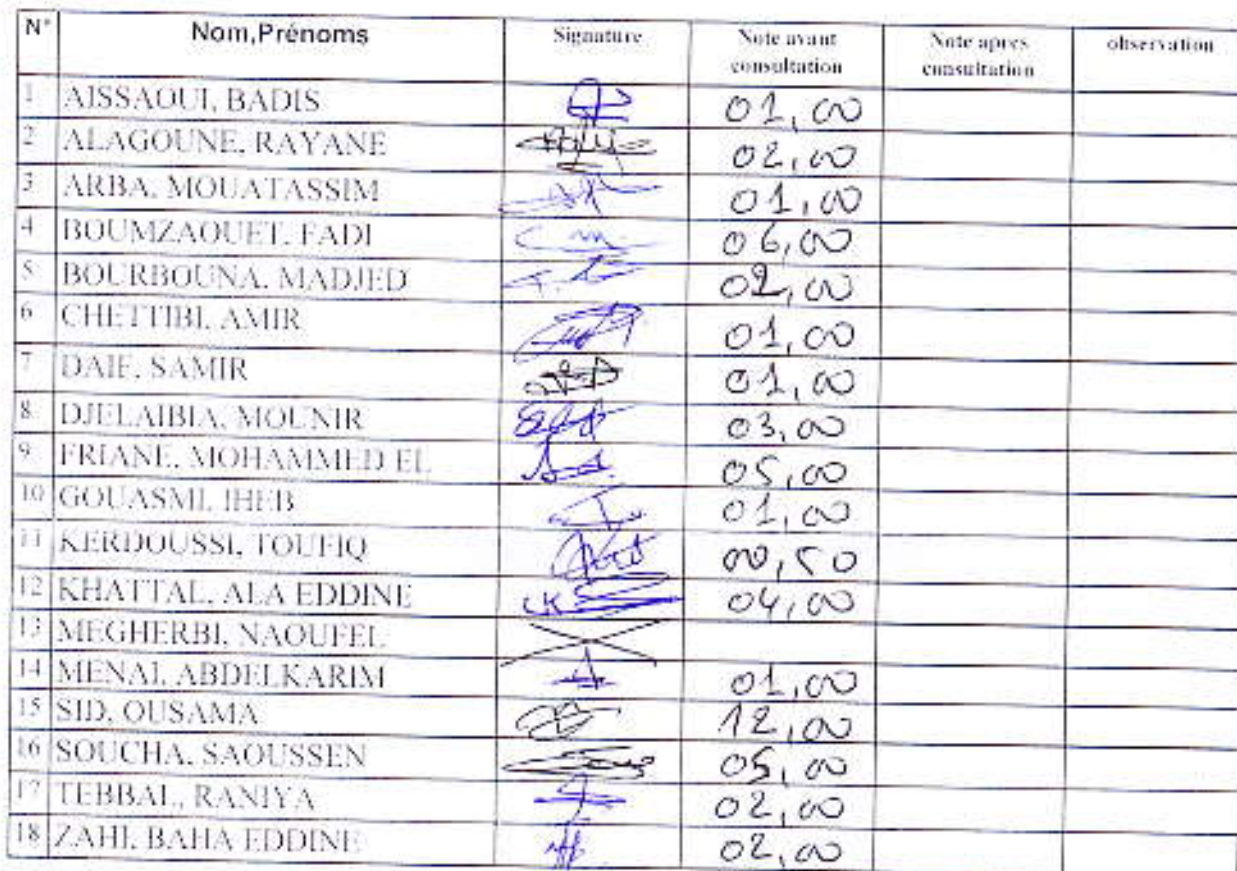 N° Nom,Prénoms Signature Note avant consultation Note apres consultation observation
1 AISSAOUI, BADIS 01,00
2 ALAGOUNE, RAYANE 02,00
3 ARBA, MOUATASSIM 01,00
4 BOUMZAOUET, FADI 06,00
5 BOURBOUNA, MADJED 02,00
6 CHETTIBI, AMIR 01,00
7 DAIF, SAMIR 01,00
8 DJELAIBIA, MOUNIR 03,00
9 FRIANE, MOHAMMED EL 05,00
10 GOUASMI, IHEB 01,00
11 KERDOUSSI, TOUFIQ 00,50
12 KHATTAL, ALA EDDINE 04,00
13 MEGHERBI, NAOUFEL
14 MENAI, ABDELKARIM 01,00
15 SID, OUSAMA 12,00
16 SOUCHA, SAOUSSEN 05,00
17 TEBBAL, RANIYA 02,00
18 ZAHI, BAHA EDDINE 02,00